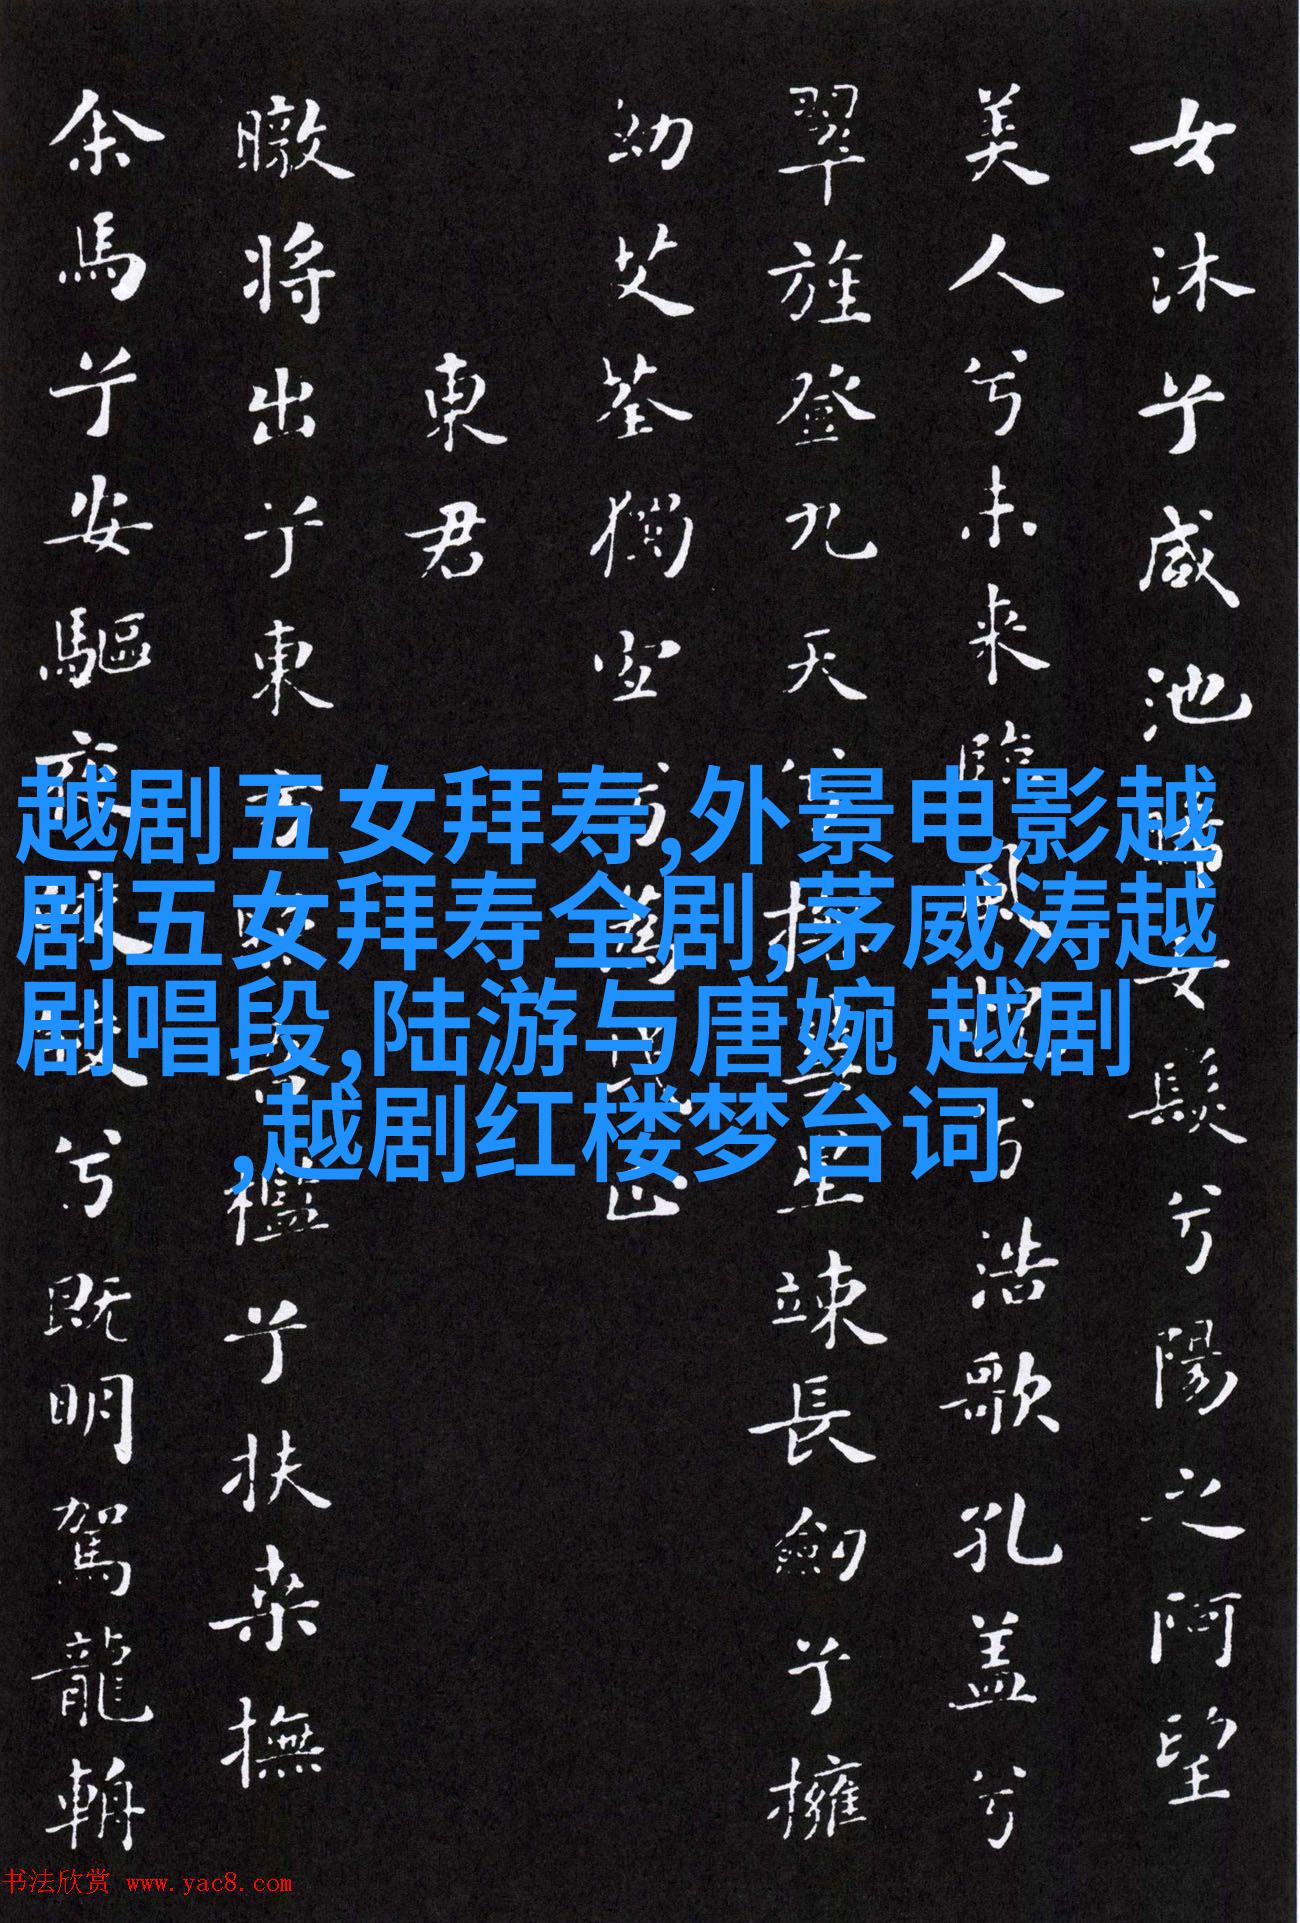 女沐兮咸池晞女髮兮陽之阿望
美人兮未来臨風怳兮浩歌孔盖兮
翠旌登九天兮撫彗星竦長劍兮擁
幼艾荃獨宜兮為民正
東君
暾将出兮東方照吾檻兮扶桑撫
余馬兮安驅夜皎皎兮既明駕龍輈
越剧五女拜寿,外景电影越
剧五女拜寿全剧,茅威涛越
剧唱段,陆游与唐婉 越剧
,越剧红楼梦台词
书法欣赏 www.yac8.com